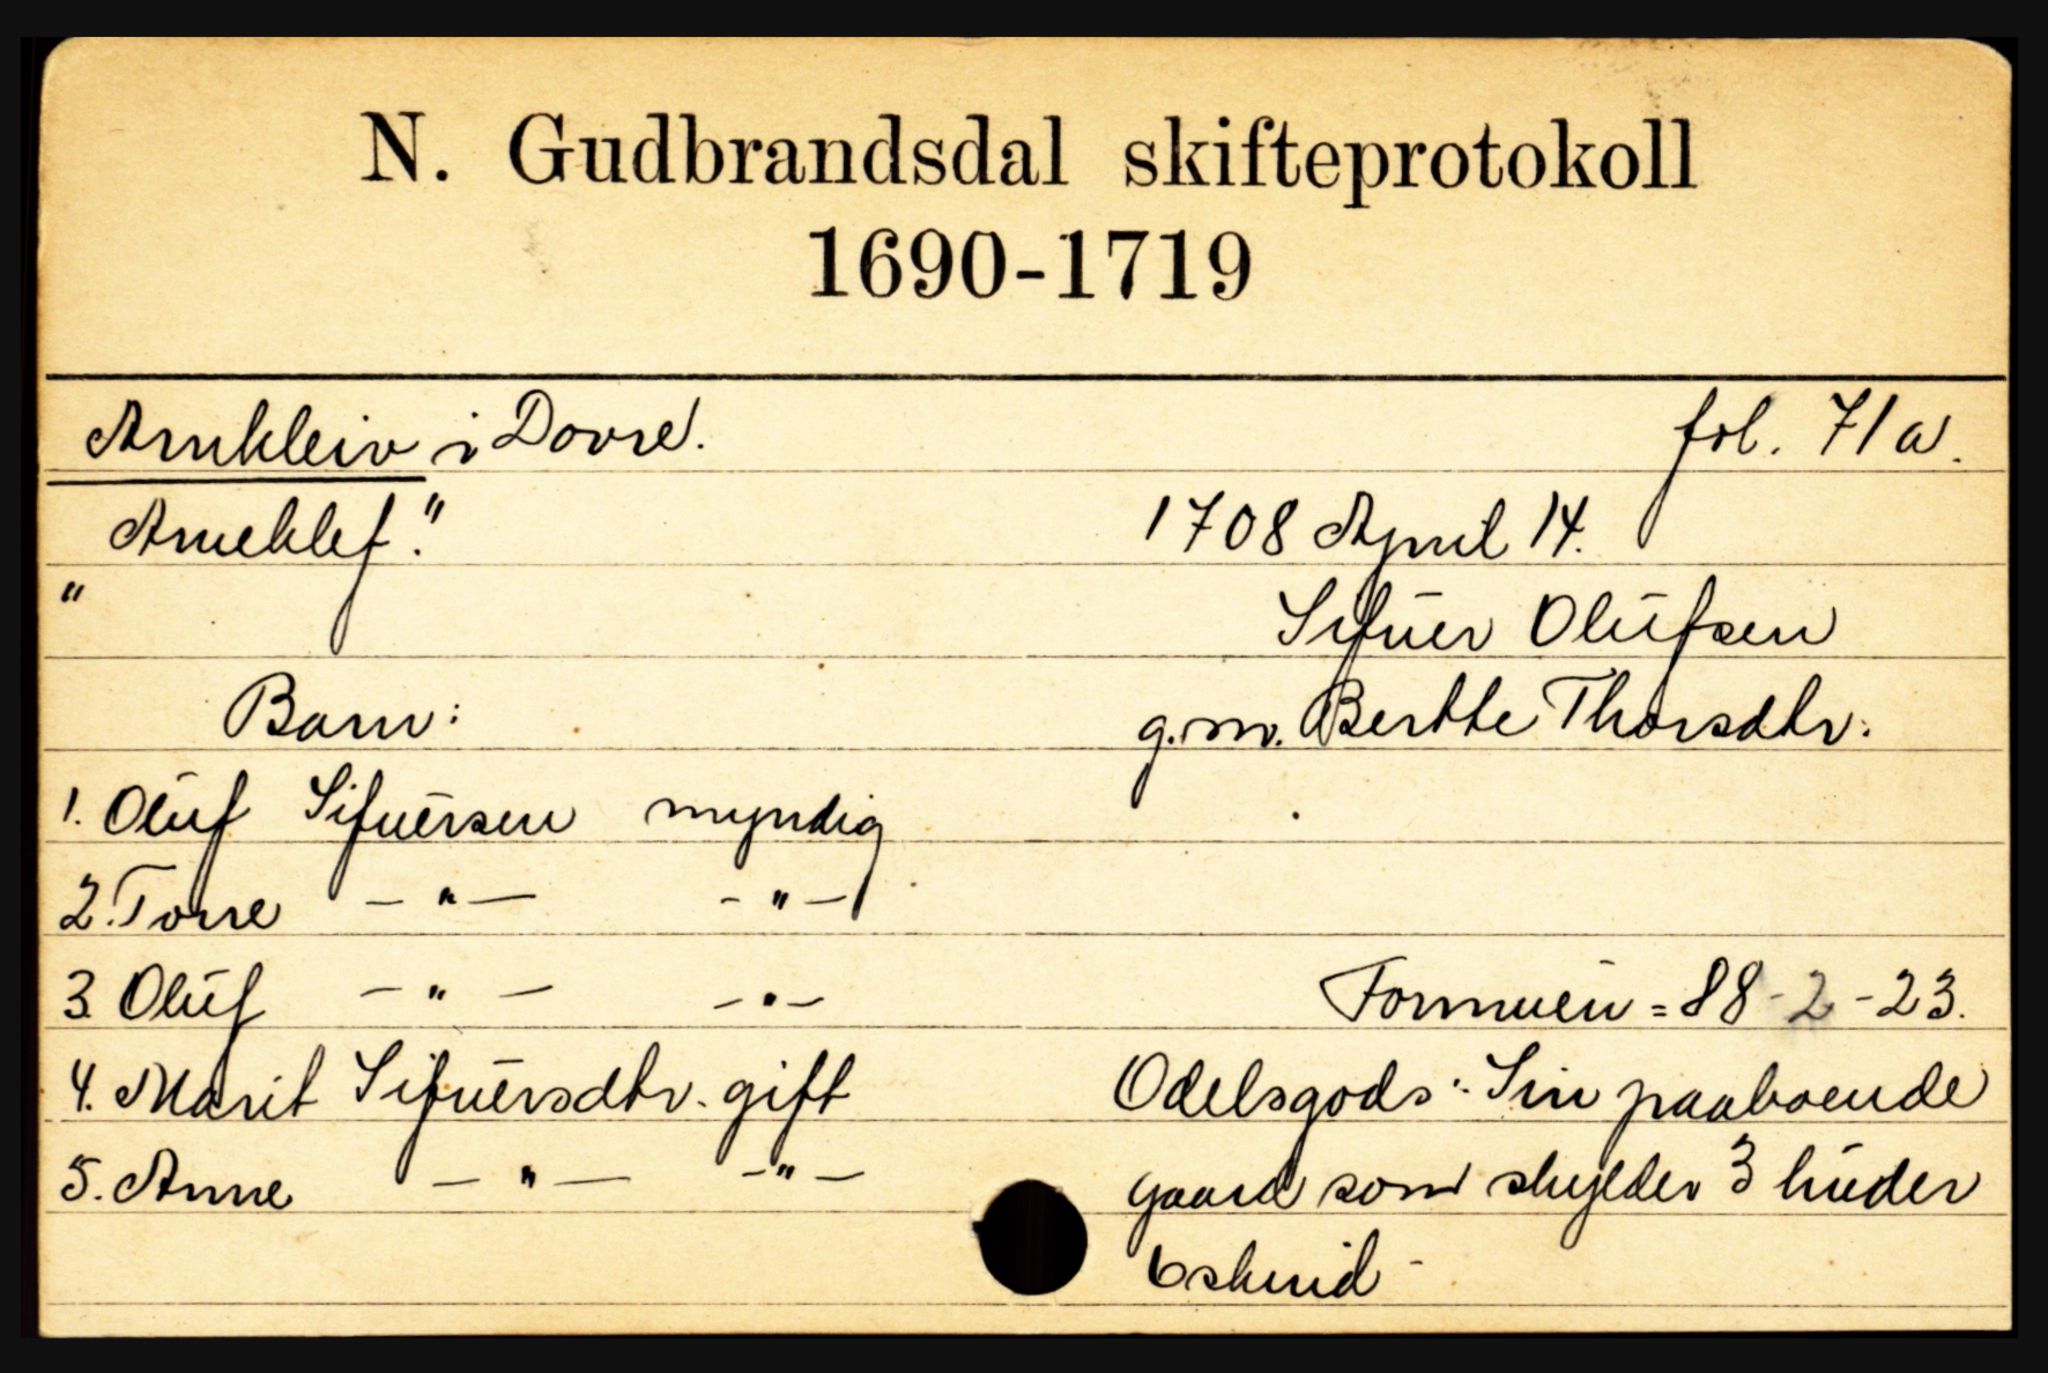 N. Gudbrandsdal skifteprotokoll
1690-1719
Arnkleiv i Dovre. fol. 71a.
"Arneklef." 1708 April 14.
Sifuer Olŭfsen
Barn: g.m. Berthe Thorsdtr.
1. Olŭf Sifuersen myndig
2. Torre -"- -"-
3. Olŭf -"- -"- Formuen = 88-2-23.
4. Marit Sifuersdtr. gift Odelsgods: Sin paaboende
5. Anne -"- -"- gaard som skylder 3 hŭder
6 skind -